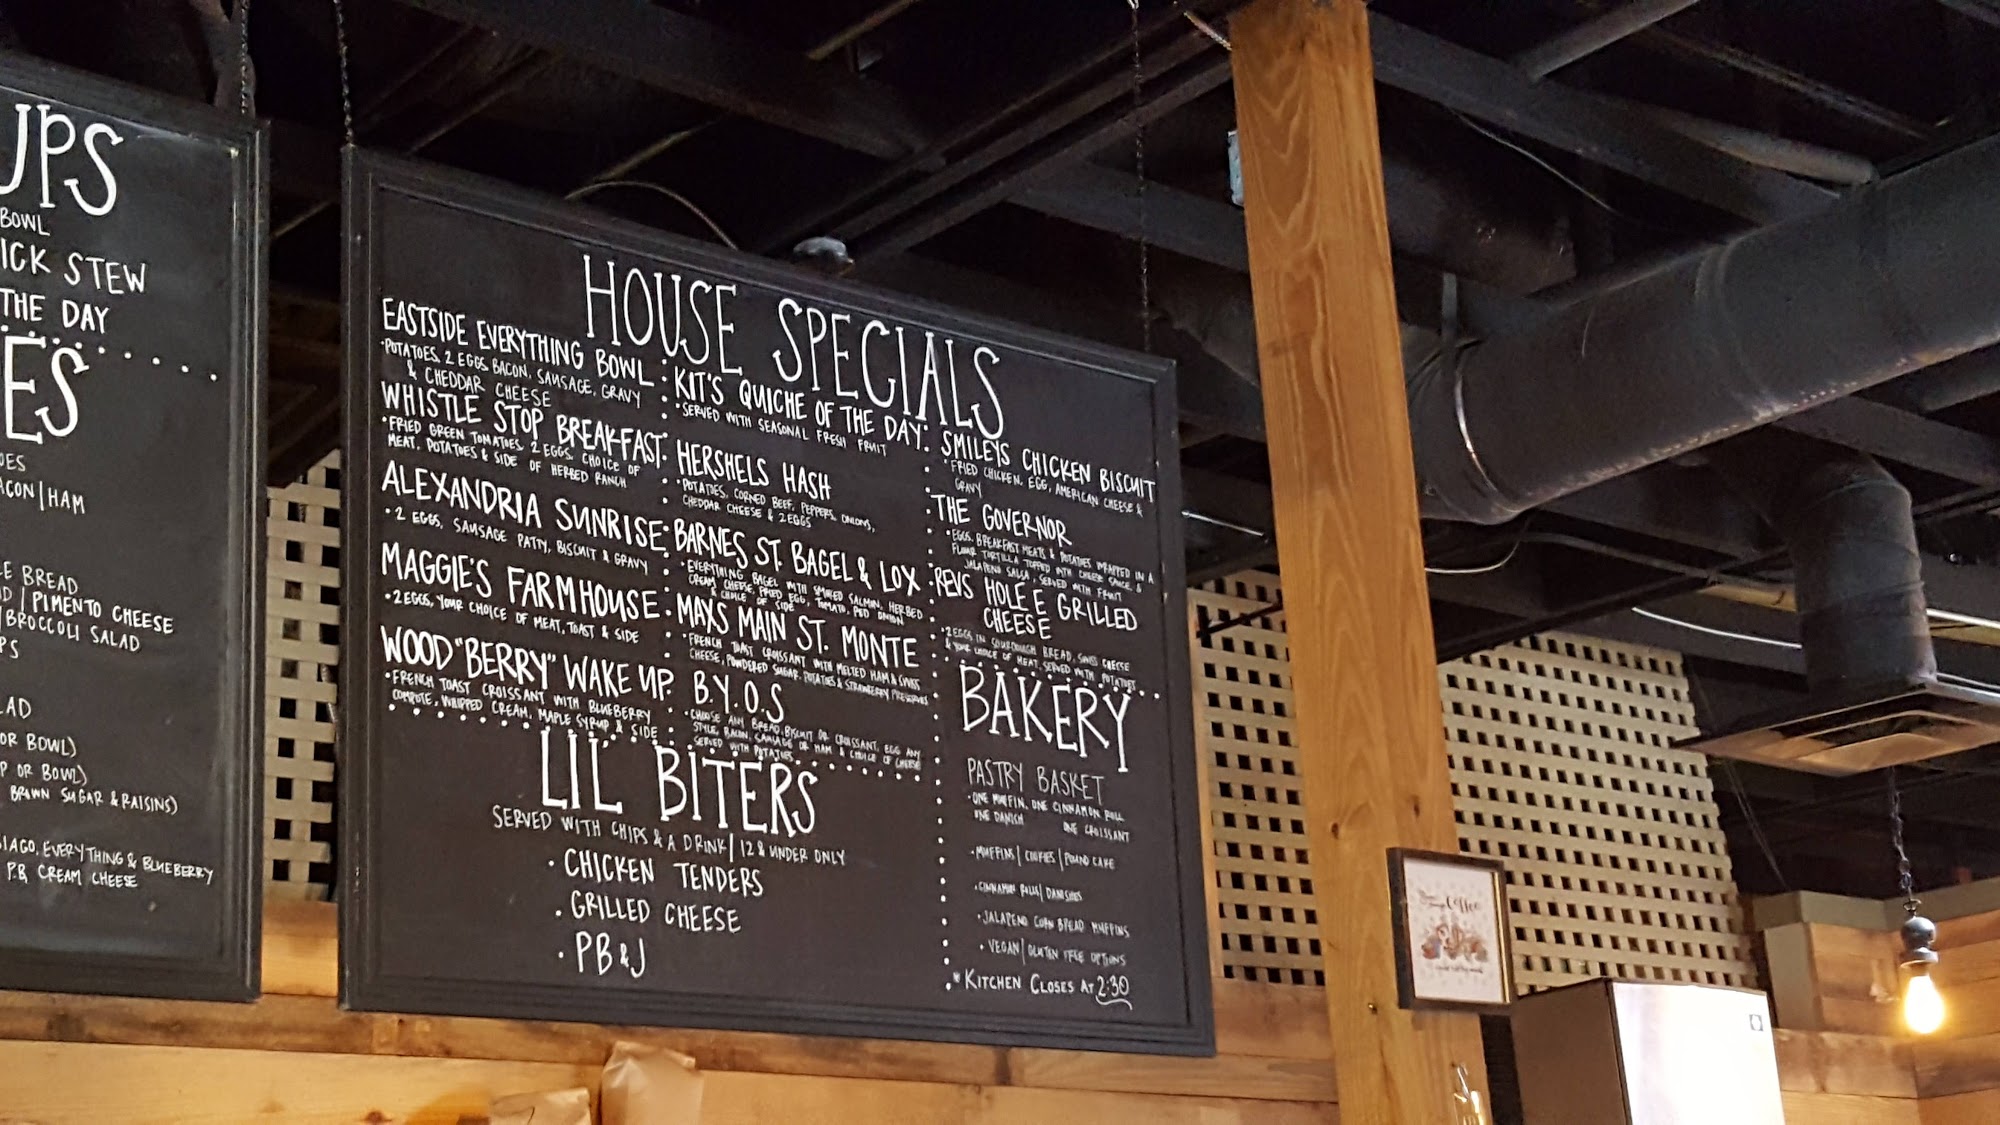 UPS
BOWL
ICK STEW
THE DAY
ES
OES
ACON | HAM
E BREAD
D | PIMENTO CHEESE
| BROCCOLI SALAD
PS
LAD
OR BOWL)
P OR BOWL)
BROWN SUGAR & RAISINS)
SIAGO, EVERYTHING & BLUEBERRY
P.B. CREAM CHEESE
HOUSE SPECIALS
EASTSIDE EVERYTHING BOWL
• POTATOES, 2 EGGS, BACON, SAUSAGE, GRAVY
& CHEDDAR CHEESE
WHISTLE STOP BREAKFAST
• FRIED GREEN TOMATOES, 2 EGGS, CHOICE OF
MEAT, POTATOES & SIDE OF HERBED RANCH
ALEXANDRIA SUNRISE
• 2 EGGS, SAUSAGE PATTY, BISCUIT & GRAVY
MAGGIE'S FARMHOUSE
• 2 EGGS, YOUR CHOICE OF MEAT, TOAST & SIDE
WOOD "BERRY" WAKE UP
• FRENCH TOAST CROISSANT WITH BLUEBERRY
COMPOTE, WHIPPED CREAM, MAPLE SYRUP & SIDE
KIT'S QUICHE OF THE DAY
• SERVED WITH SEASONAL FRESH FRUIT
HERSHELS HASH
• POTATOES, CORNED BEEF, PEPPERS, ONIONS,
CHEDDAR CHEESE & 2 EGGS
BARNES ST. BAGEL & LOX
• EVERYTHING BAGEL WITH SMOKED SALMON, HERBED
CREAM CHEESE, FRIED EGG, TOMATO, RED ONION
& CHOICE OF SIDE
MAXS MAIN ST. MONTE
• FRENCH TOAST CROISSANT WITH MELTED HAM & SWISS
CHEESE, POWDERED SUGAR, POTATOES & STRAWBERRY PRESERVES
B.Y.O.S
• CHOOSE ANY BREAD, BISCUIT OR CROISSANT, EGG ANY
STYLE, BACON, SAUSAGE OR HAM & CHOICE OF CHEESE
SERVED WITH POTATOES
SMILEYS CHICKEN BISCUIT
• FRIED CHICKEN, EGG, AMERICAN CHEESE &
GRAVY
THE GOVERNOR
• EGGS, BREAKFAST MEATS & POTATOES WRAPPED IN A
FLOUR TORTILLA TOPPED WITH CHEESE SAUCE &
JALAPENO SALSA, SERVED WITH FRUIT
REVS HOLE E GRILLED
CHEESE
• 2 EGGS IN SOURDOUGH BREAD, SWISS CHEESE
& YOUR CHOICE OF MEAT, SERVED WITH POTATOES
BAKERY
PASTRY BASKET
• ONE MUFFIN, ONE CINNAMON ROLL
ONE DANISH ONE CROISSANT
• MUFFINS | COOKIES | POUND CAKE
• CINNAMON ROLLS | DANISHES
• JALAPENO CORN BREAD MUFFINS
• VEGAN | GLUTEN FREE OPTIONS
* KITCHEN CLOSES AT 2:30
LIL' BITERS
SERVED WITH CHIPS & A DRINK | 12 & UNDER ONLY
• CHICKEN TENDERS
• GRILLED CHEESE
• PB & J
Coffee